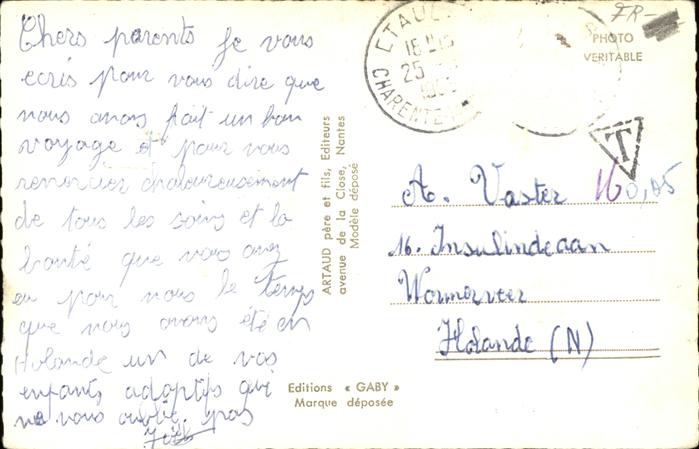 Chers parents je vous
ecris pour vous dire que
nous avons fait un bon
voyage et pour vous
remercier chaloureusement
de tous les soins et la
bonté que vous avez
eu pour nous le temps
que nous avons été en
Holande un de vos
enfants adoptifs qui
ne vous oublie pas
ARTAUD père et fils, Editeurs
avenue de la Close, Nantes
Modèle déposé
Editions « GABY »
Marque déposée
ETAULE
16
25
CHARENTE
PHOTO
VERITABLE
T
A. Vaster
0,05
16. Insulindeaan
Wormerveer
Holande (N)